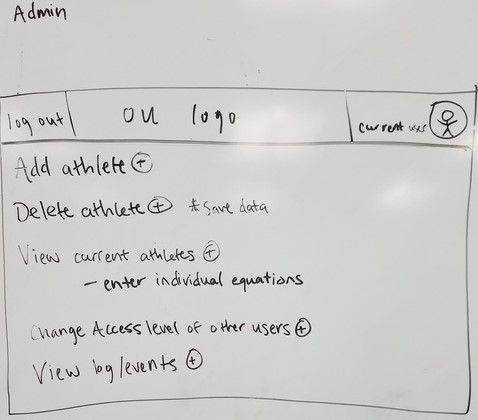 Admin
log out
OU logo
current user
Add athlete +
Delete athlete + * save data
View current athletes +
- enter individual equations
Change Access level of other users +
View log/events +